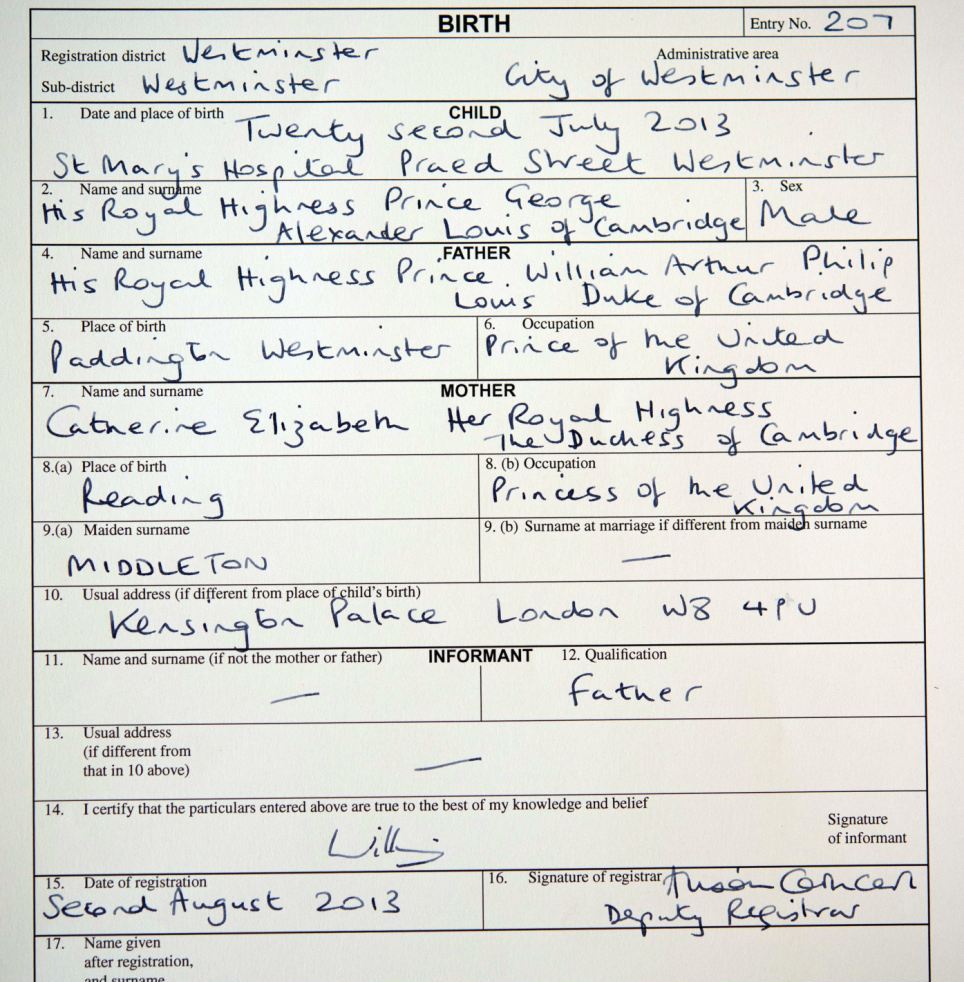 BIRTH
Entry No. 207
Registration district Westminster
Administrative area
Sub-district Westminster
City of Westminster
1. Date and place of birth
CHILD
Twenty second July 2013
St Mary's Hospital Praed Street Westminster
2. Name and surname
His Royal Highness Prince George
Alexander Louis of Cambridge
3. Sex
Male
4. Name and surname
FATHER
His Royal Highness Prince William Arthur Philip
Louis Duke of Cambridge
5. Place of birth
Paddington Westminster
6. Occupation
Prince of the United
Kingdom
7. Name and surname
MOTHER
Catherine Elizabeth Her Royal Highness
The Duchess of Cambridge
8.(a) Place of birth
Reading
8. (b) Occupation
Princess of the United
Kingdom
9.(a) Maiden surname
MIDDLETON
9. (b) Surname at marriage if different from maiden surname
—
10. Usual address (if different from place of child's birth)
Kensington Palace London W8 4PU
11. Name and surname (if not the mother or father)
INFORMANT
—
12. Qualification
Father
13. Usual address
(if different from
that in 10 above)
—
14. I certify that the particulars entered above are true to the best of my knowledge and belief
Signature
of informant
15. Date of registration
Second August 2013
16. Signature of registrar
Deputy Registrar
17. Name given
after registration,
and surname